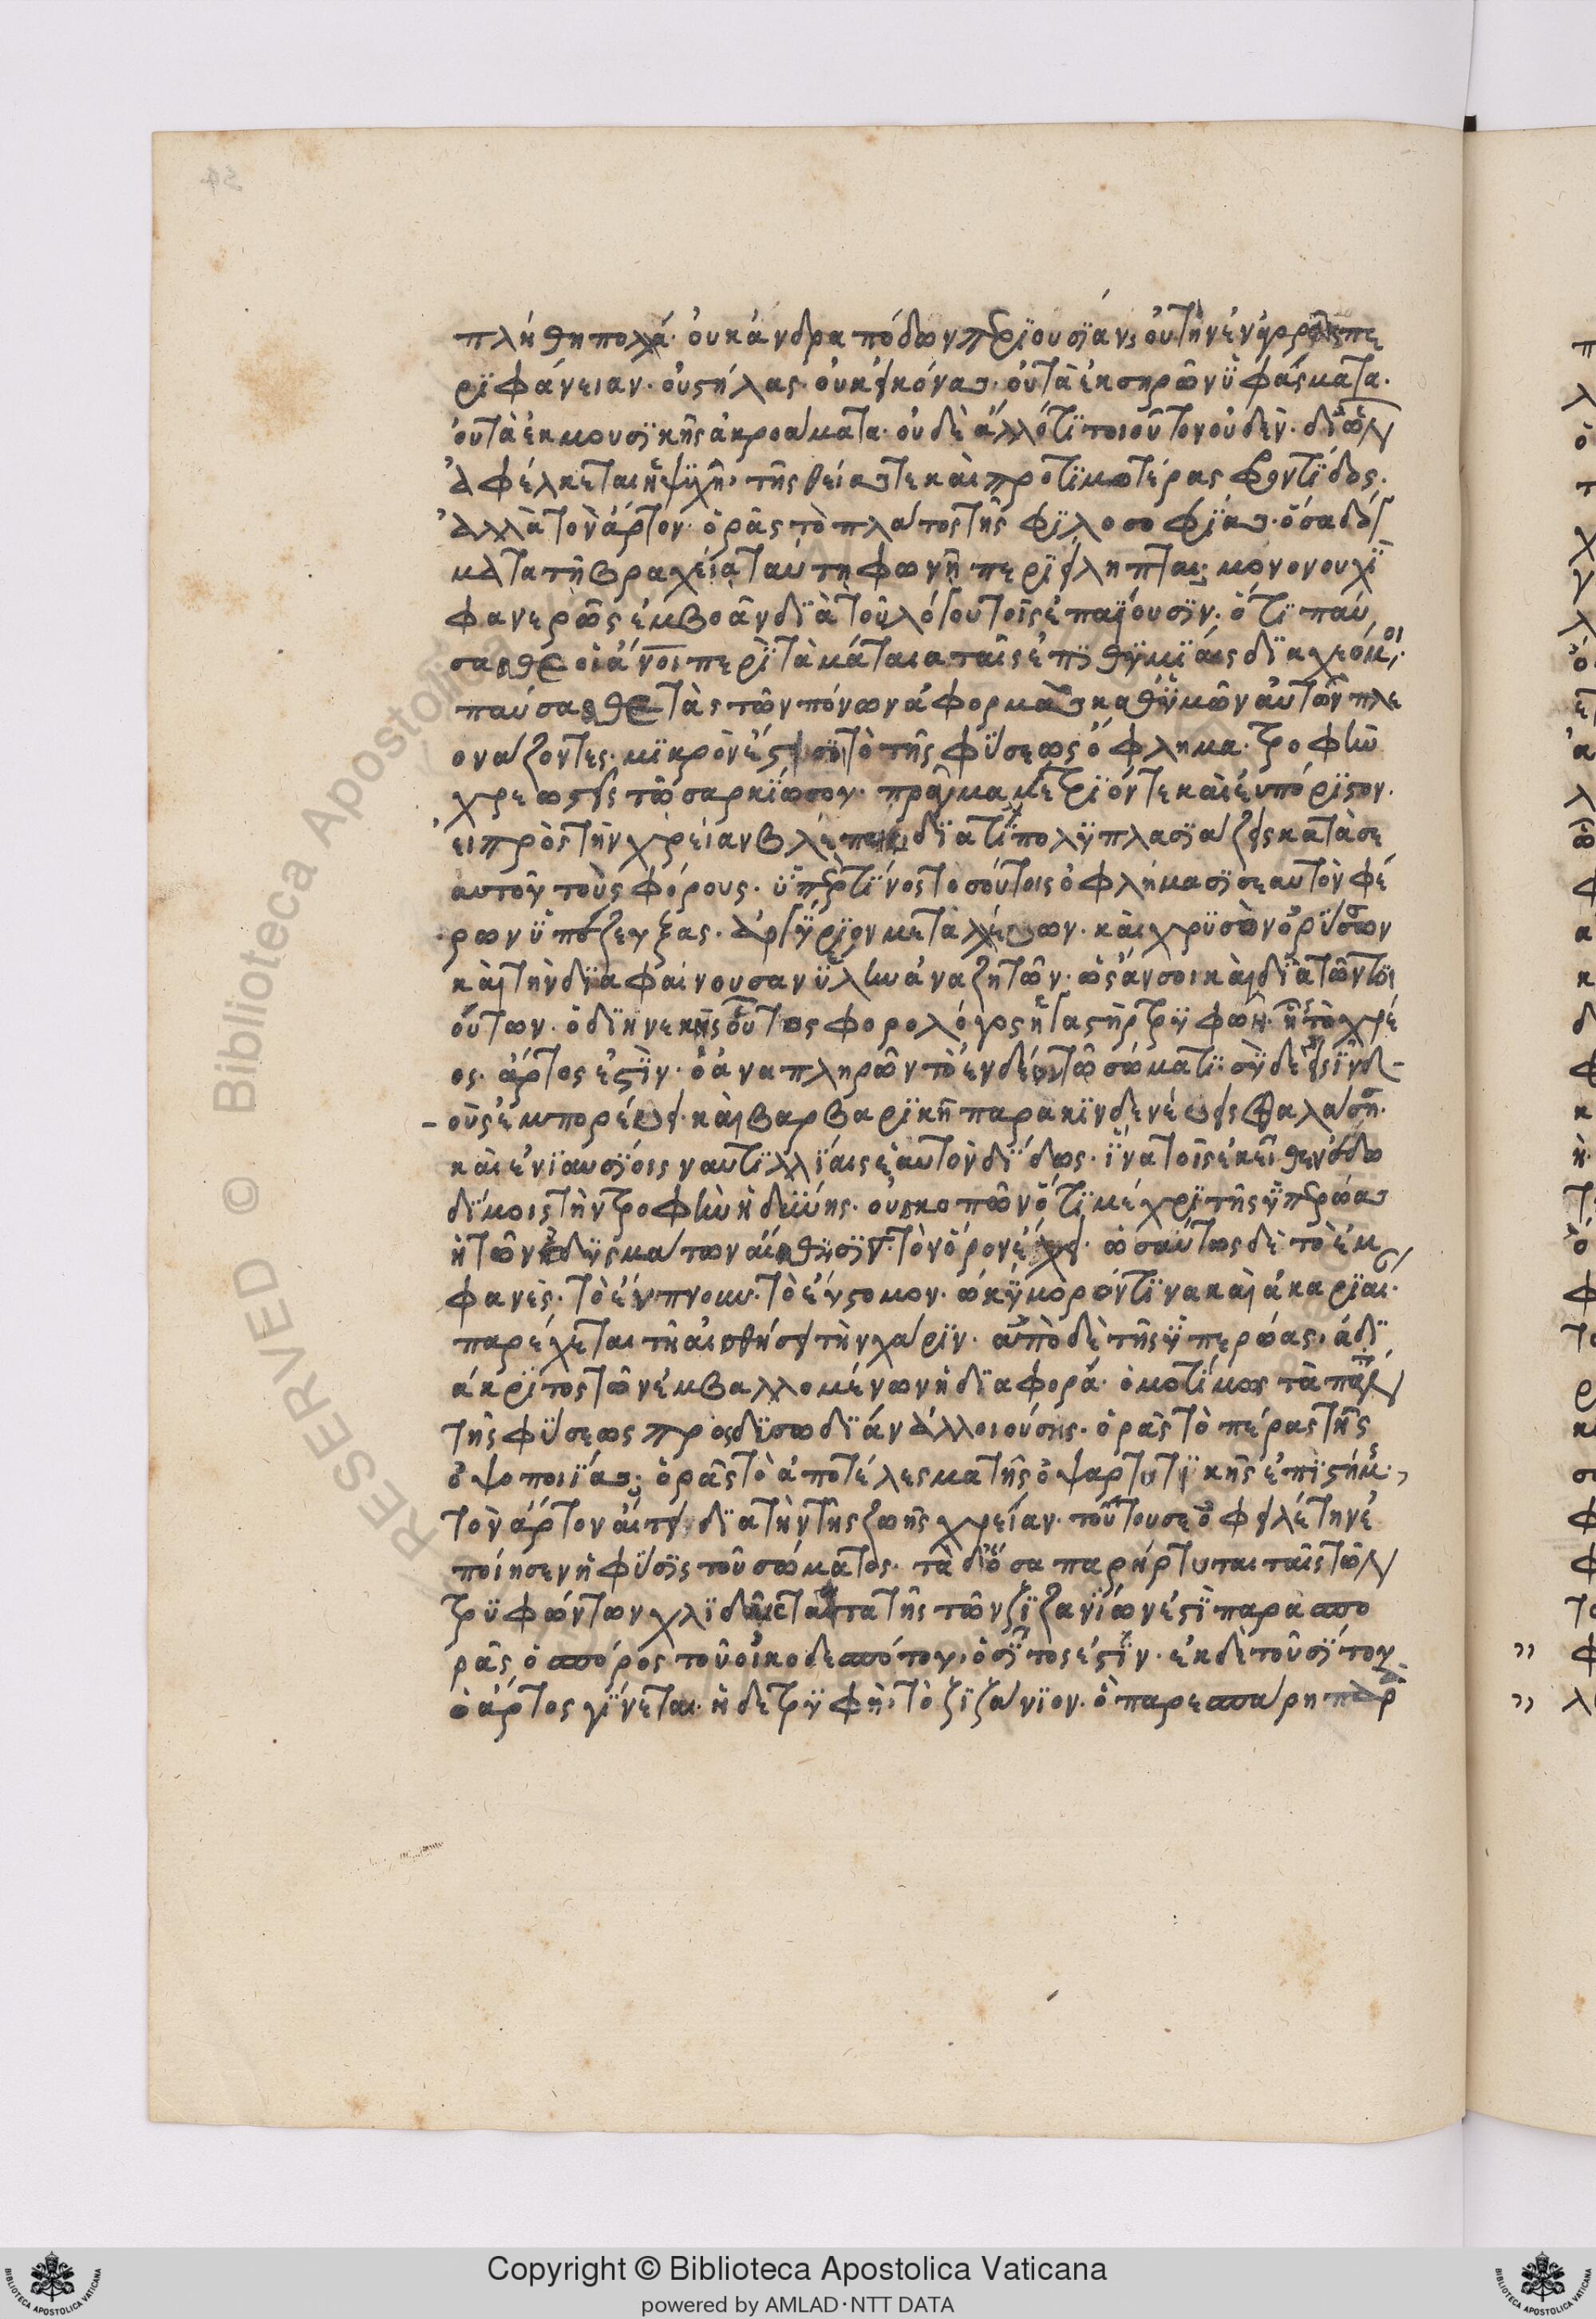 πλήθη πολλά· οὐκ ἀνδραπόδων περιουσίαν· οὐ τὴν ἐν ἀρχαῖς πε
ριφάνειαν· οὐ στήλας· οὐκ εἰκόνας· οὐ τὰ ἐκ σηρῶν ὑφάσματα·
οὐ τὰ ἐκ μουσικῆς ἀκροάματα· οὐδὲ ἄλλό τι τοιοῦτον οὐδὲν· δι ὧν
ἀφέλκεται ἡ ψυχὴ, τῆς θείας τε καὶ προτιμοτέρας φροντίδος·
ἀλλὰ τὸν ἄρτον· ὁρᾶς τὸ πλάτος τῆς φιλοσοφίας· ὅσα δόγ
ματα τῆ βραχεία ταύτη φωνῆ περιείληπται· μονονουχὶ
φανερῶς ἐμβοᾶν διὰ τοῦ λόγου τοῖς ἐπαΐουσιν· ὅτι παύ
σασθε οἱ ἄνοι περὶ τὰ μάταια ταῖς ἐπιθυμίαις διαχεόμενοι·
παύσασθε τὰς τῶν πόνων ἀφορμὰς καθ ὑμῶν αὐτῶν πλε
ονάζοντες· μικρόν ἐστί σοι τὸ τῆς φύσεως ὄφλημα· τροφὴν
χρεωστεῖς τῶ σαρκίω σου· πράγμα μέτριόν τε καὶ εὐπόριστον·
εἰ πρὸς τὴν χρείαν βλέπεις· διατί πολυπλασιάζεις κατὰ σε
αυτοῦ τοὺς φόρους· ὑπὲρ τίνος τοσούτοις ὀφλήμασι σεαυτὸν φέ
ρων ὑπόζευξας· ἀργύριον μεταλλεύων· καὶ χρυσὸν ὀρύσσων
καὶ τὴν διαφαίνουσαν ὕλην ἀναζητῶν· ὡς ἄν σοι καὶ διὰ τῶν τοι
ούτων· ὁ διηνεκὴς οὗτος φορολόγος ἡ γαστὴρ τρυφώη· ἧ τὸ χρέ
ος· ἄρτος ἐστὶν· ὁ ἀναπληρῶν τὸ ἐνδέον τῶ σώματι· σὺ δὲ εἰς ἰνδ-
-οὺς ἐμπορεύει· καὶ βαρβαρικῆ παρακινδυνεύεις θαλάσση·
καὶ ἐνιαυσίοις ναυτιλλίαις ἑαυτὸν δίδως· ἵνα τοῖς ἐκεῖθεν ἐδω
δίμοις τὴν τροφὴν ἡδύνης· οὐ σκοπῶν ὅτι μέχρι τῆς ὑπερώας
ἡ τῶν ἡδυσμάτων αἴσθησιν τὸν ὅρον ἔχει· ὡσαύτως δὲ τὸ ἐμ
φανὲς· τὸ εὔπνουν· τὸ εὔστομον· ὠκύμορόν τινα καὶ ἀκαριαι·
παρέχεται τῆ αἰσθήσει τὴν χάριν· ἀπὸ δὲ τῆς ὑπερώας, ἀδι
άκριτος τῶν ἐμβαλλομένων ἡ διαφορά· ὁμοτίμως τὰ πάντα
τῆς φύσεως πρὸς δυσωδίαν ἀλλοιούσης· ὁρᾶς τὸ πέρας τῆς
ὀψοποιίας· ὁρᾶς τὸ ἀποτέλεσμα τῆς ὀψαρτυτικῆς ἐπιστήμης·
τὸν ἄρτον αἴτει διὰ τὴν τῆς ζωῆς χρείαν· τούτου σε ὀφειλέτην ἐ
ποίησεν ἡ φύσις τοῦ σώματος· τὰ δ ὅσα παρήρτυται ταῖς τῶν
τρυφώντων χλιδαῖς ταῦτα τῆς τῶν ζιζανίων ἐστὶ παρασπο
ρᾶς, ὁ σπόρος τοῦ οἰκοδεσπότου, ὁ σῖτος ἐστὶν· ἐκ δὲ τοῦ σίτου
ὁ ἄρτος γίνεται· ἡ δὲ τρυφὴ, τὸ ζιζάνιον· ὃ παρεσπάρη παρ